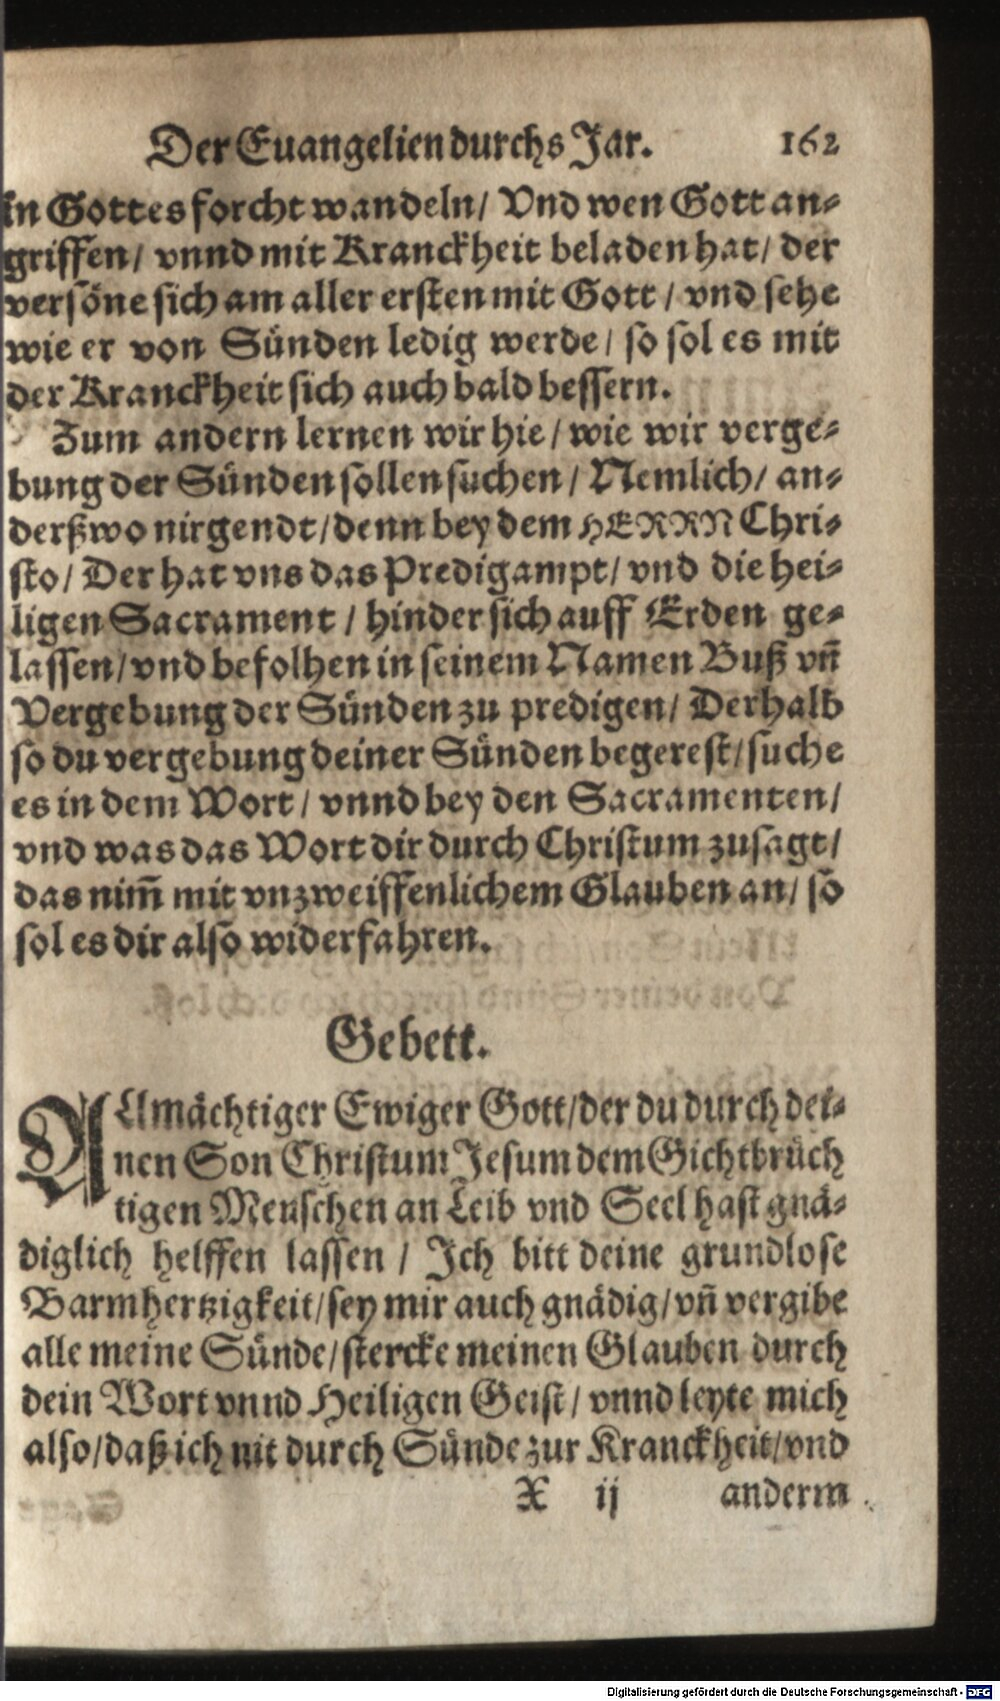 Der Euangelien durchs Jar. 162
in Gottes forcht wandeln/ Vnd wen Gott an-
griffen/ vnnd mit Kranckheit beladen hat/ der
versöne sich am aller ersten mit Gott / vnd sehe
wie er von Sünden ledig werde / so sol es mit
der Kranckheit sich auch bald bessern.
Zum andern lernen wir hie / wie wir verge-
bung der Sünden sollen suchen / Nemlich/ an-
derßwo nirgendt/denn bey dem HERRN Chri-
sto/ Der hat vns das Predigampt/ vnd die hei-
ligen Sacrament / hinder sich auff Erden ge-
lassen/vnd befolhen in seinem Namen Buß vñ
Vergebung der Sünden zu predigen/ Derhalb
so du vergebung deiner Sünden begerest/suche
es in dem Wort / vnnd bey den Sacramenten/
vnd was das Wort dir durch Christum zusagt/
das nim̃ mit vnzweiffenlichem Glauben an/ so
sol es dir also widerfahren.
Gebett.
ALmächtiger Ewiger Gott/der du durch dei-
nen Son Christum Jesum dem Gichtbrüch
tigen Menschen an Leib vnd Seel hast gnä-
diglich helffen lassen / Ich bitt deine grundlose
Barmhertzigkeit/sey mir auch gnädig/vñ vergibe
alle meine Sünde/stercke meinen Glauben durch
dein Wort vnnd Heiligen Geist/ vnnd leyte mich
also/daß ich nit durch Sünde zur Kranckheit/vnd
X ij anderm
Digitalisierung gefördert durch die Deutsche Forschungsgemeinschaft - DFG